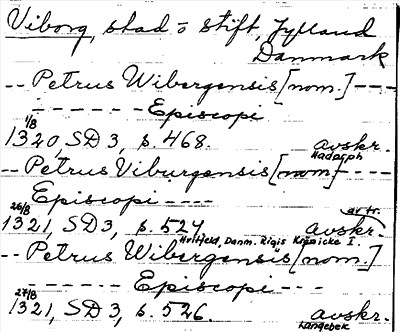 Viborg, stad o stift, Jylland
Danmark
-- Petrus Wibergensis [nom.] ----
------ Episcopi
1/8
1320, SD 3, s. 468. avskr.
Hadorph
-- Petrus Viburgensis [nom] ----
Episcopi ----
26/8
1321, SD 3, s. 524 avskr.
Hvitfeld, Danm. Rigis Krønicke I.
-- Petrus Wibergensis [nom.]
------ Episcopi ---
27/8
1321, SD 3, s. 526. avskr.
Langebek